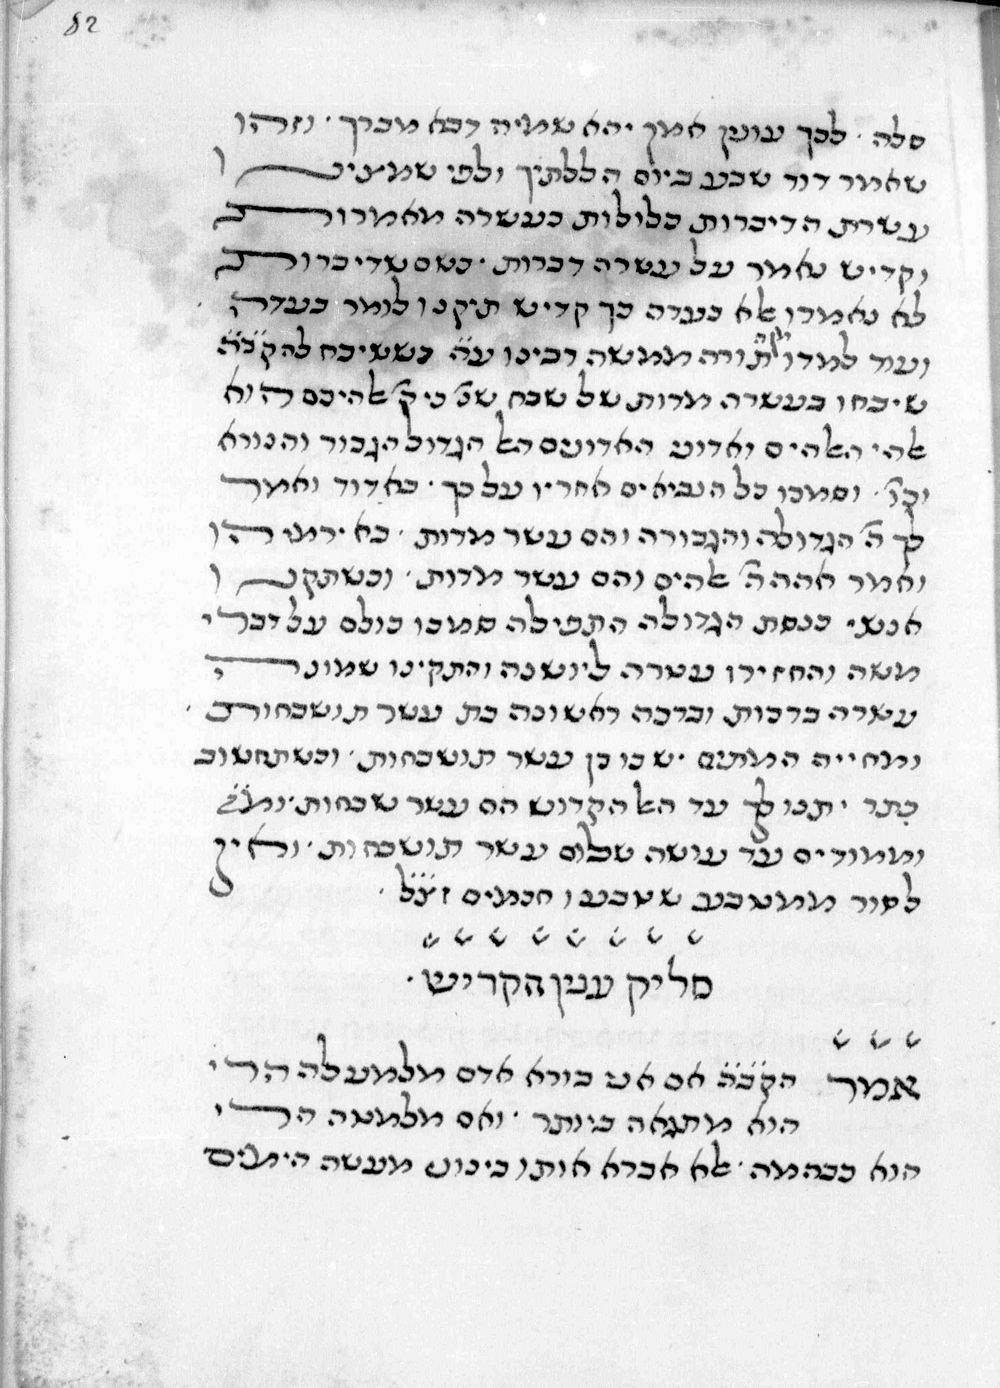 82
סלה · לכך עונין אמן יהא שמיה רבא מברך · וזהו
שאמר דוד שבע ביום הללתיך ולפי שמצינו
עשרת הדיברות כלולות בעשרה מאמרות
וקדיש נאמר על עשרה דברות · כשם שדיברות
לא נאמרו אלא בעדה כך קדיש תיקנו לומר בעדה ·
ועוד למדו תורה ממשה רבינו ע״ה כששיבח להקב״ה
שיבחו בעשרה מדות של שבח שנ׳ כי ה׳ אלהיכם הוא
אלהי האלהים ואדוני האדונים האל הגדול הגבור והנורא
וכו׳ · וסמכו כל הנביאים אחריו על כך · בא דוד ואמר
לך ה׳ הגדולה והגבורה והם עשר מדות · בא ירמיהו
ואמר אהה ה׳ אלהים והם עשר מדות · וכשתקנו
אנשי כנסת הגדולה התפילה סמכו כולם על דברי
משה והחזירו עטרה ליושנה והתקינו שמונה
עשרה ברכות וברכה ראשונה בת עשר תושבחות ·
ומחייה המתים · יש בו כן עשר תושבחות · וכשתחשוב
כתר יתנו לך עד האל הקדוש הם עשר שבחות ·
וממודים עד עושה שלום עשר תושבחות · ואין
לסור ממטבע שטבעו חכמים ז״צ״ל ·
סליק ענין הקדיש ·
אמר הקב״ה אם אני בורא אדם מלמעלה הרי
הוא מתגאה ביותר · ואם מלמטה הרי
הוא כבהמה · אלא אברא אותו כינון מעשה הימים